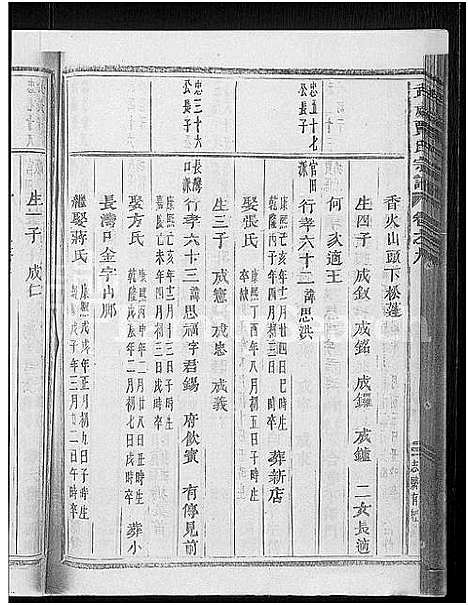 武威賈氏宗譜 卷之九
香火山頭下松蓬
生四子 成釵 成銘 成鑼 成鑪 二女長適
何 次適王
忠五十七公長子
官田派
行孝六十三 諱思洪
康熙丁亥年十二月廿四日巳時生
乾隆丙申年四月初三日
葬新店
娶張氏
康熙丁酉年八月初五日
忠三十六公長子
長灣口派
行孝六十三 諱思福字君錫 府飲賓 有傳見前
康熙丁亥年十二月十三日子時生
乾隆己亥年四月初三日戌時卒
生三子 成憲 成忠 成義
娶方氏
康熙丙申年二月廿八日丑時生
乾隆 年二月初七日戌時卒
葬小
長灣里金字內廊
繼娶蔣氏
康熙戊戌年五月初九日子時生
戊子年三月初二日午時
生一子 成仁